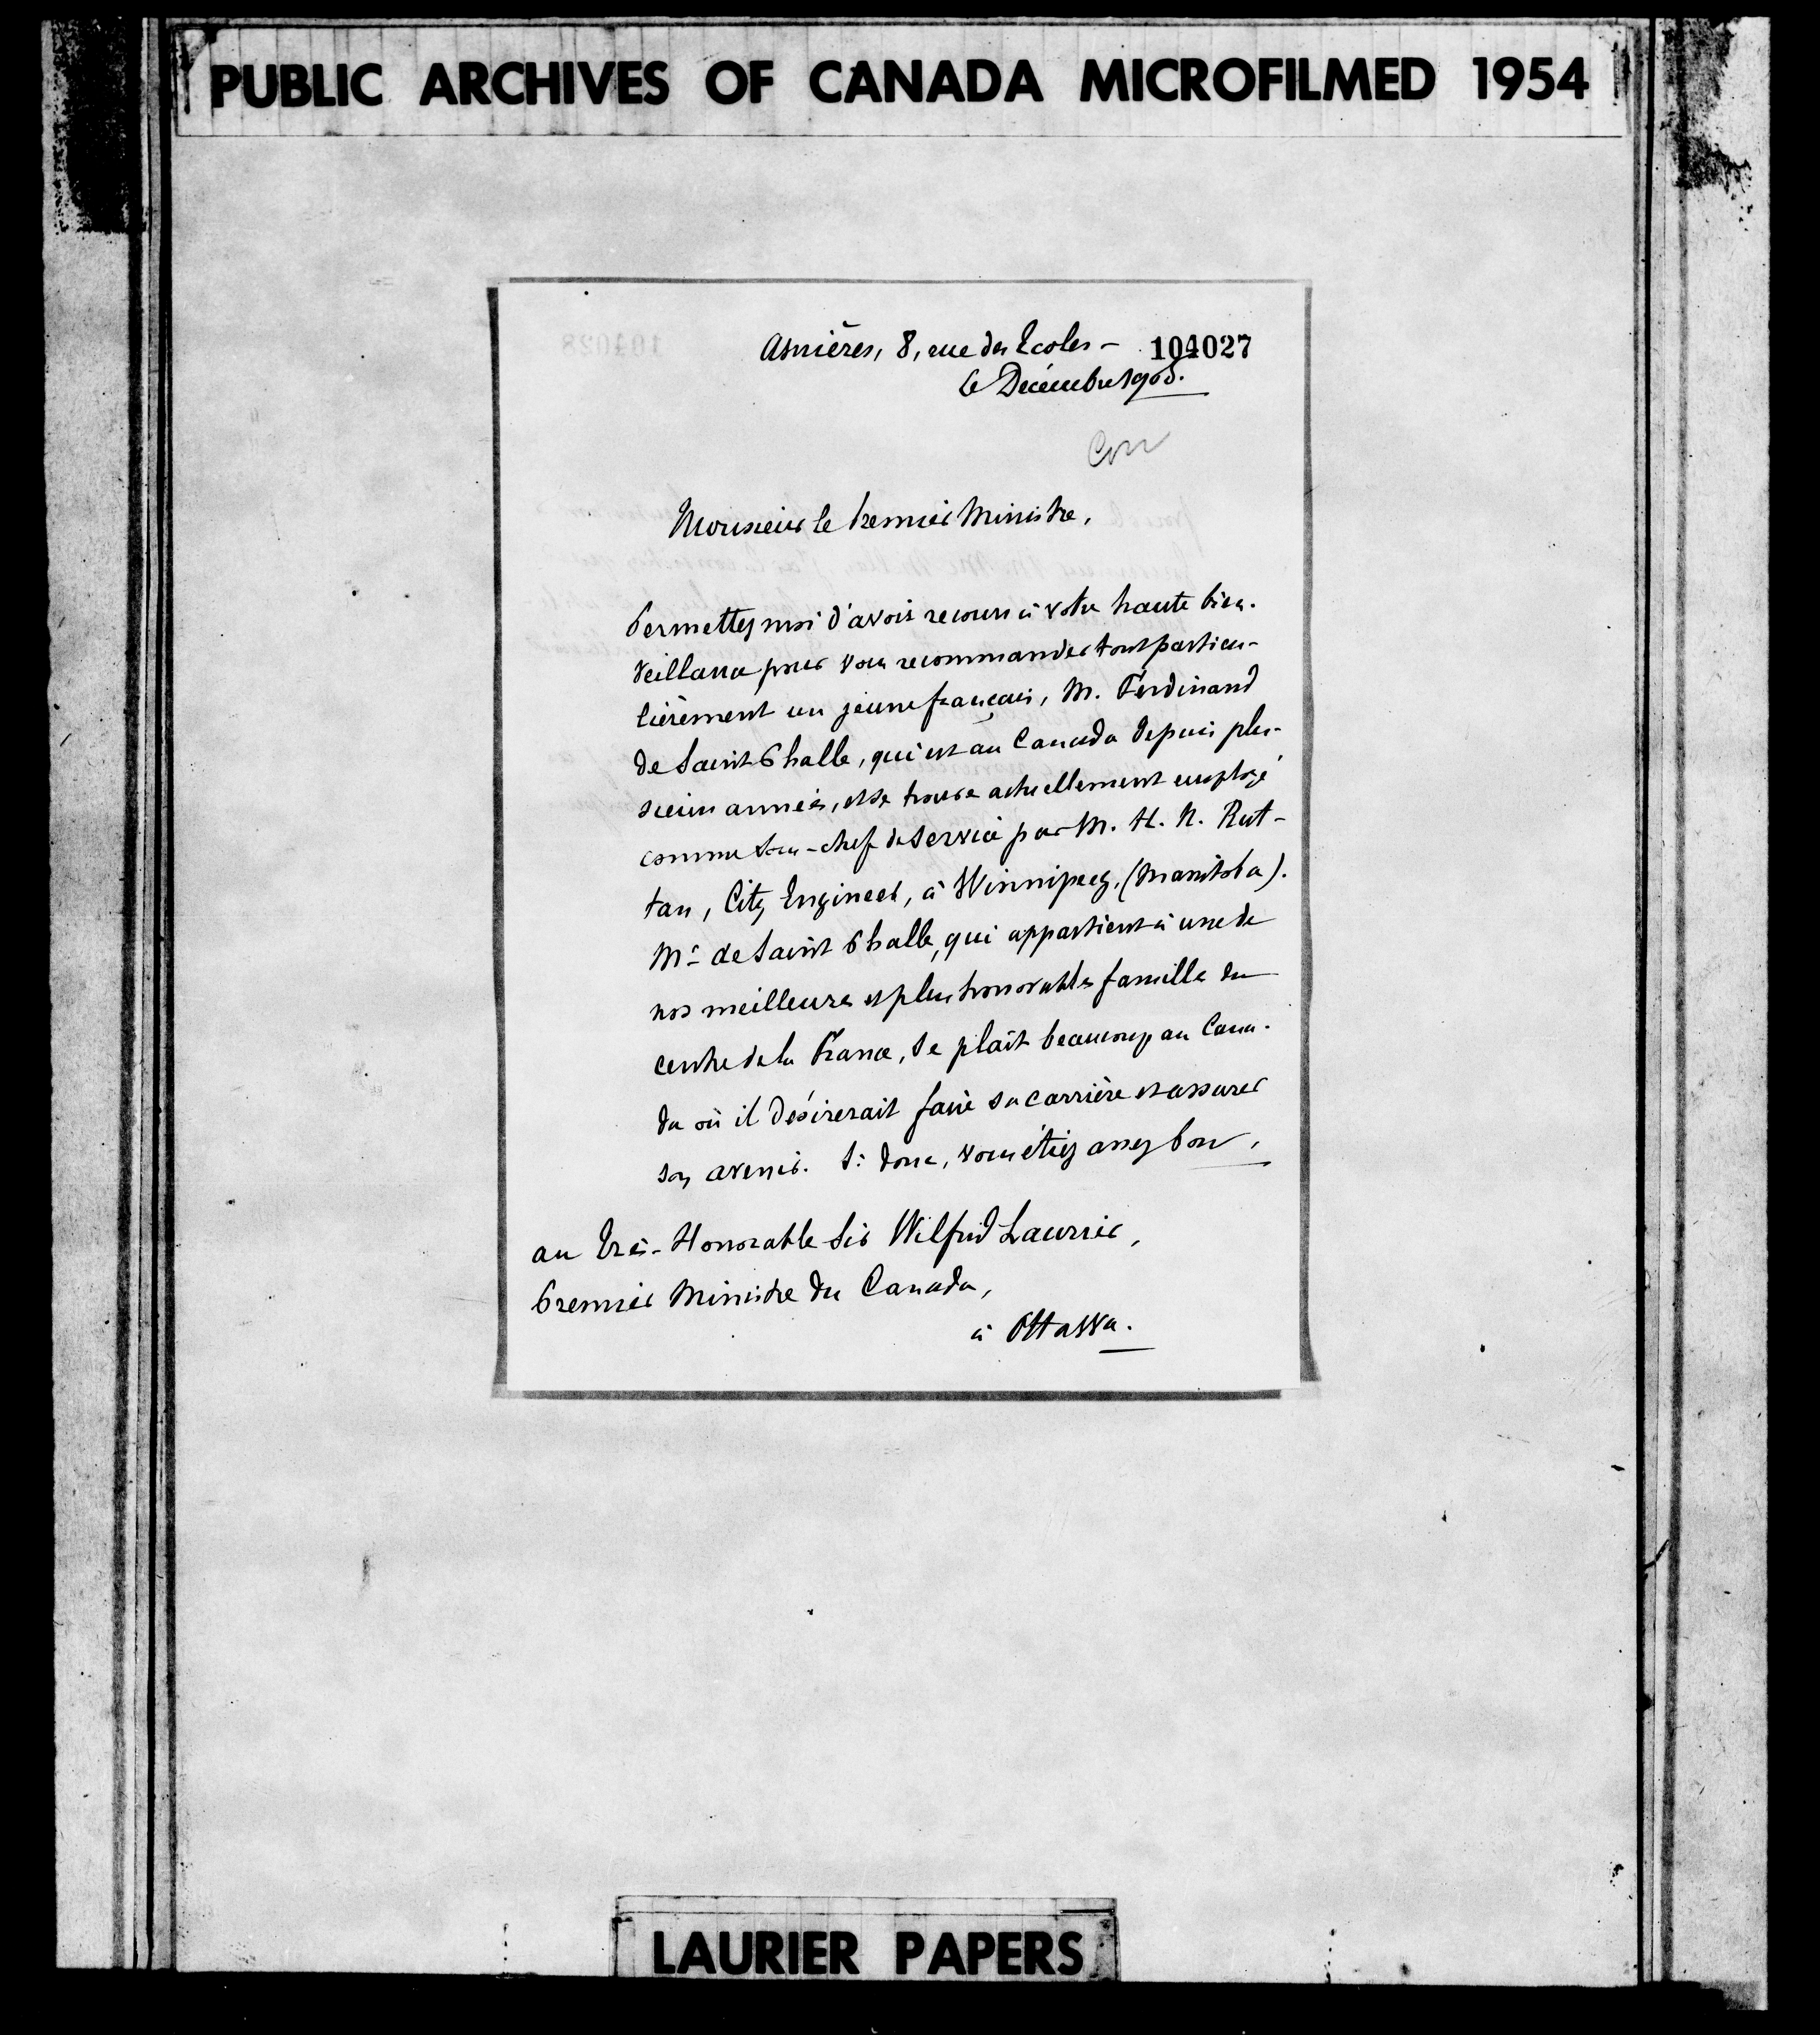 PUBLIC ARCHIVES OF CANADA MICROFILMED 1954
Asnières, 8, rue des Ecoles - 104027
6 Décembre 1905.
Monsieur le Premier Ministre,
Permettez moi d'avoir recours à votre haute bien-
veillance pour vous recommander tout particu-
lièrement un jeune français, M. Ferdinand
de Saint Phalle, qui est au Canada depuis plu-
sieurs années, et se trouve actuellement employé
comme sous-chef de service par M. H. N. Rut-
tan, City Engineer, à Winnipeg, (Manitoba).
Mr de Saint Phalle, qui appartient à une de
nos meilleures et plus honorables familles du
centre de la France, se plaît beaucoup au Cana-
da où il désirerait faire sa carrière et assurer
son avenir. Si donc, vous étiez assez bon,
au Très-Honorable Sir Wilfrid Laurier,
Premier Ministre du Canada,
à Ottawa.
LAURIER PAPERS